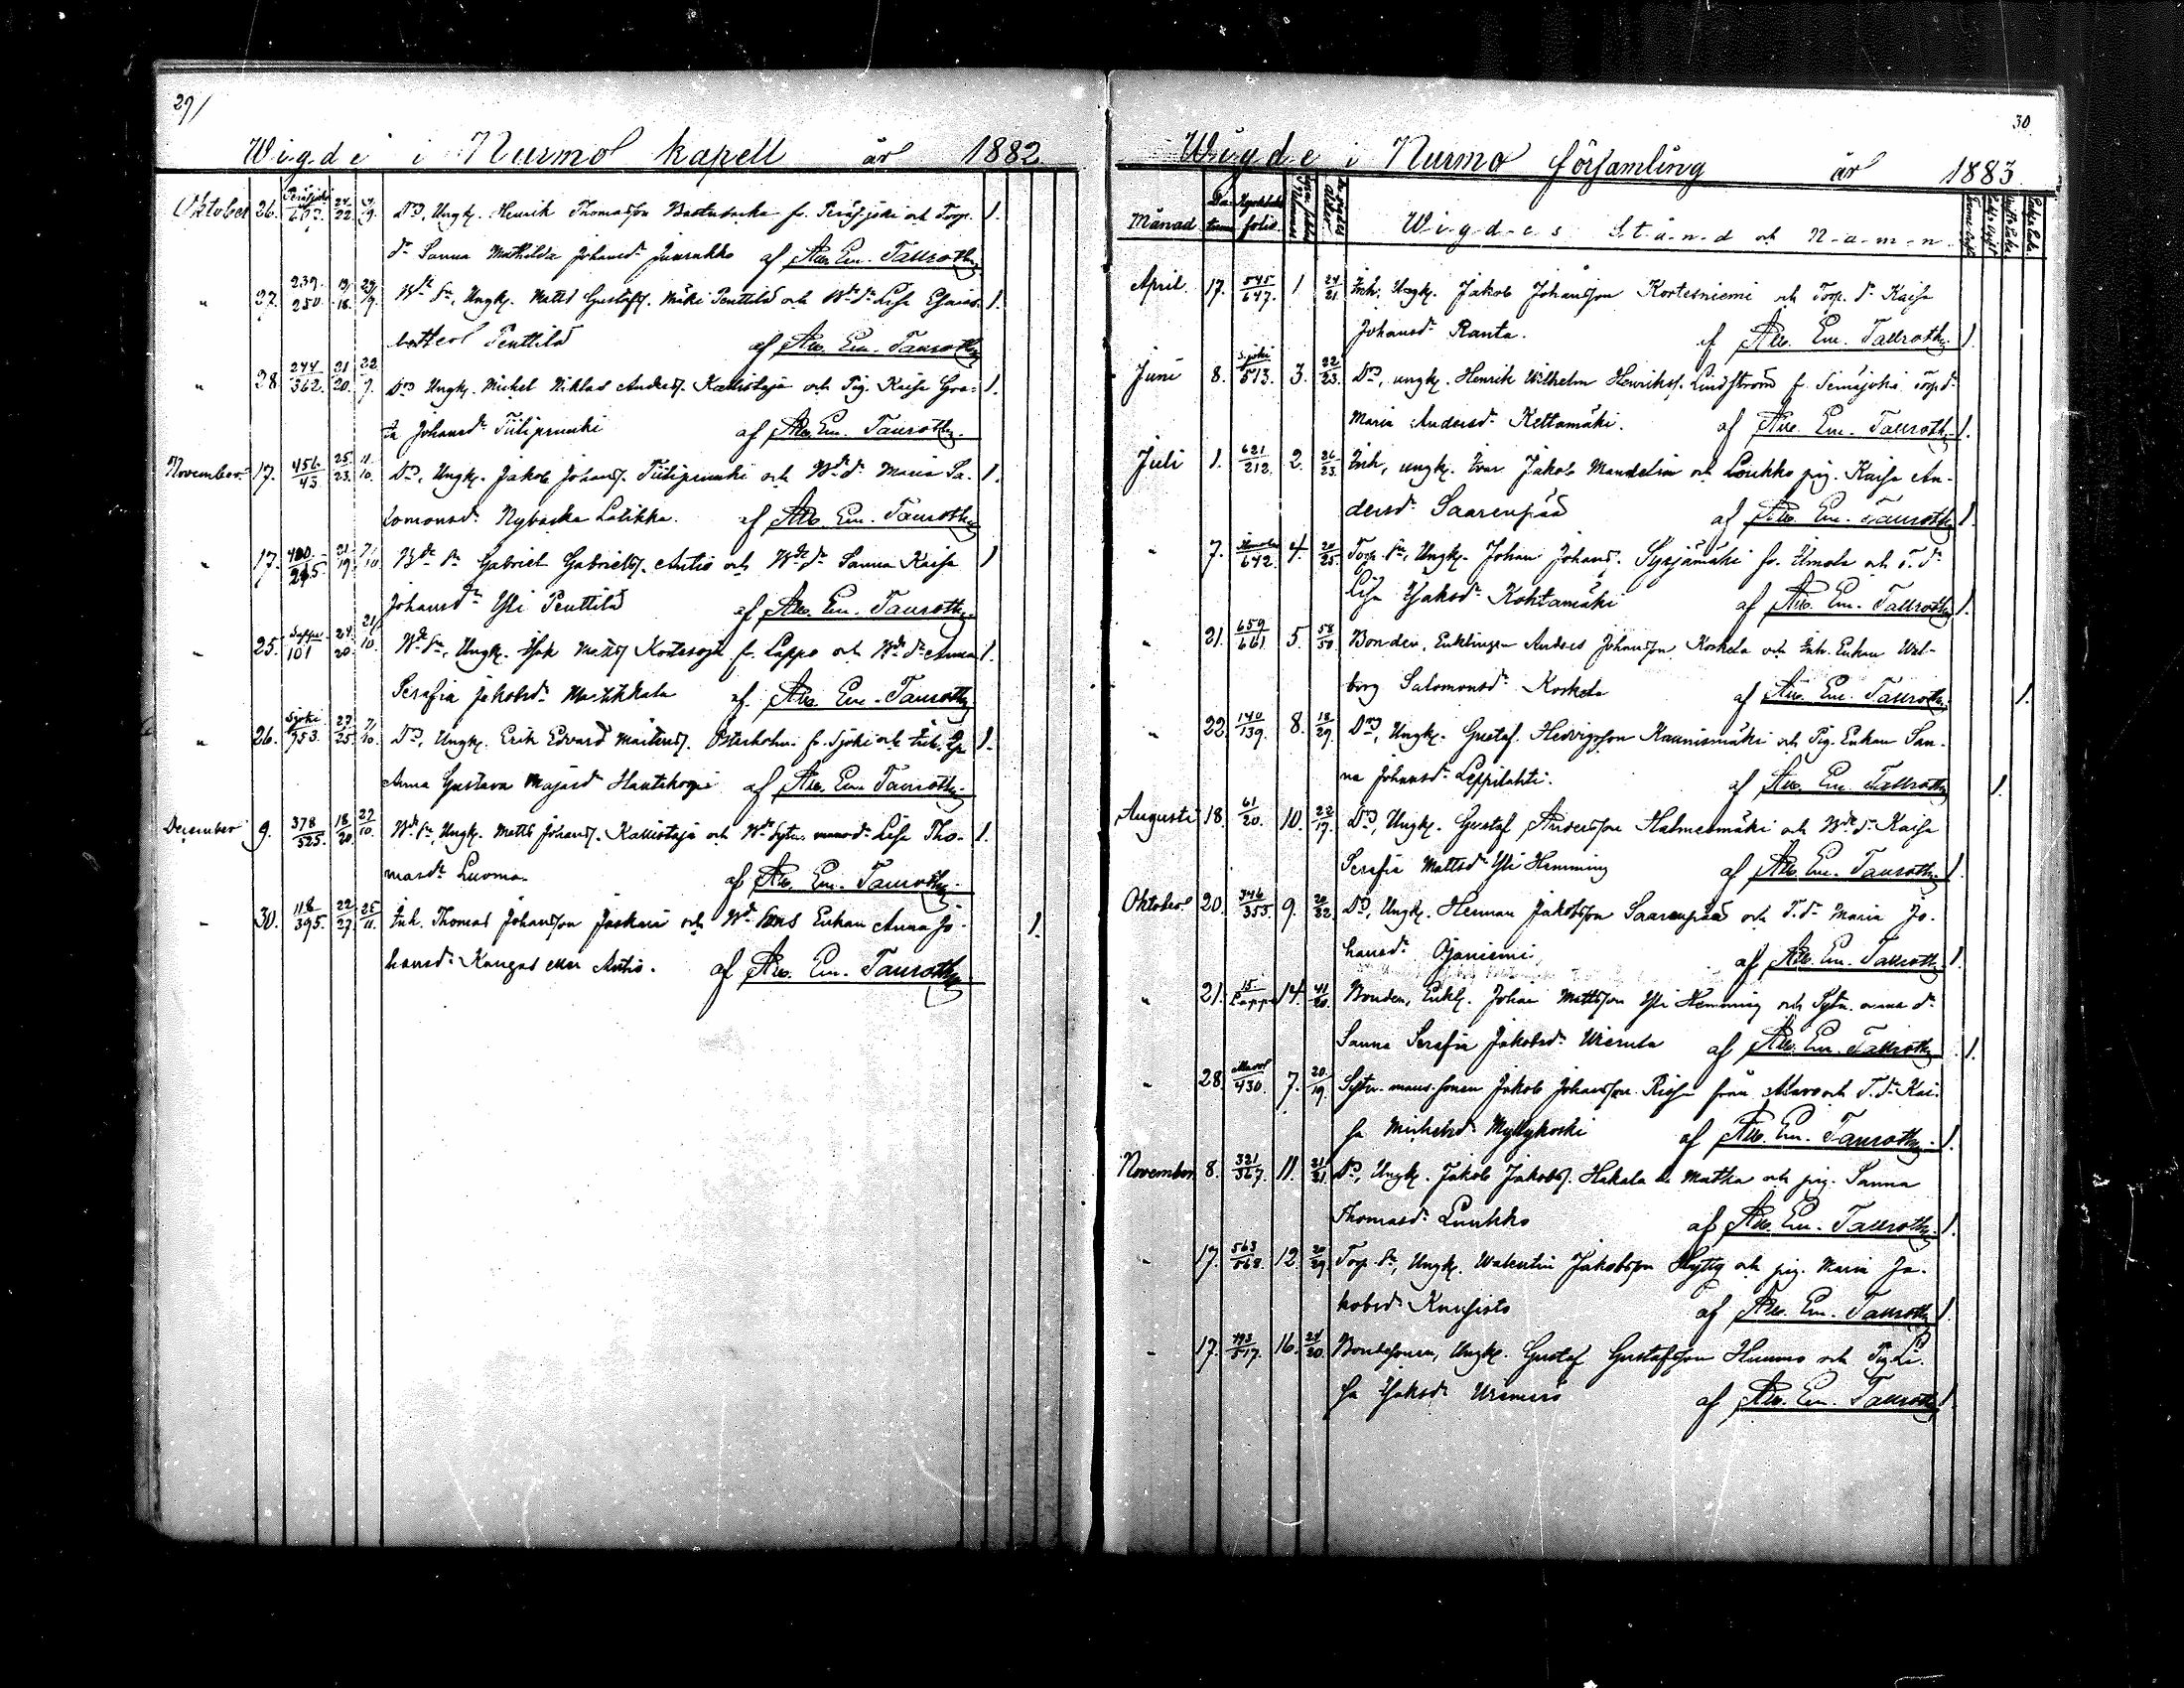 29/
Wigde i Nurmo kapell år 1882
Oktober 26. 24/22 Dng, Ungk. Henrik Thomasson fr. Peräsjoki och Torp. 1.
dr Sanna Mathilda Johansdr Juurakko af Alb. Em. Tallroth
" 27. 239/250 19/18 Bde Sn, Ungk. Matts Gustafss. Mäki Penttilä och Bde dr Lisa 1.
Penttilä af Alb. Em. Tallroth
" 28. 244/362 21/20 22/9. Dng Ungk. Michel Niklas Anderss. Kallistaja och Pig. Kaisa Gre- 1.
ta Johansdr Tiilipruukki af Alb. Em. Tallroth
November 17. 456/43 25/23 11/10. Dng, Ungk. Jakob Johanss. Tiilipruukki och Bde dr Maria Sa- 1.
lomonsdr Nybacka Latikka. af Alb. Em. Tallroth
" 17. 400/295. 21/19 7/10 Bde Sn Gabriel Gabrielss. Antio och Bde dr Sanna Kaisa 1
Johansdr Yli Penttilä af Alb. Em. Tallroth
" 25. Lappo/101 24/20 21/10. Bde Sn, Ungk. Isak Mattss Kortesoja fr. Lappo och Bde dr Anna 1.
Serafia Jakobsdr Martikkala af Alb. Em. Tallroth
" 26. Sjoki/753. 27/25. 7/10. Dng, Ungk. Erik Edvard Mårtenss. Österholm fr. Sjoki och Inh.
Anna Gustava Majasdr Hautakorpi af Alb. Em. Tallroth
December 9. 378/525. 18/20. 27/10. Bde Sn, Ungk. Matts Johanss. Kallistaja och Bde Sytn. Lisa Tho- 1.
masdr Luoma. af Alb. Em. Tallroth
" 30. 118/395. 22/27. 25/11. Inh. Thomas Johansson Jaskari och Bde Sons Enkan Anna Jo- 1.
hansdr Kangas eller Antio. af Alb. Em. Tallroth
30
Wigde i Nurmo församling år 1883
Månad Datum folio. Ålder Wigdes Stånd och Namn
April. 17. 545/647. 1 24/21 Inh. Ungk. Jakob Johansson Kortesniemi och Torp. dr Kaisa
Johansdr Ranta. af Alb. Em. Tallroth 1.
Juni 8. Sjoki/513. 3. 22/23. Dng, ungk. Henrik Wilhelm Henrikss. Lindström fr. Torp dr
Maria Andersdr Kettamäki. af Alb. Em. Tallroth 1.
Juli 1. 621/212. 2. 26/23. Inh, ungk. Ivar Jakob Mandelin och Loukko pig. Kaisa An-
dersdr Saarenpää af Alb. Em. Tallroth 1.
" 7. Ilmola/642. 4. 20/25. Torp. Sn, Ungk. Johan Johanss. Syrjämäki fr. Ilmola och T. dr
Lisa Isaksdr Kohtamäki af Alb. Em. Tallroth 1.
" 21. 659/661. 5. 58/50 Bonden, Enklingen Anders Johansson Koskela och Inh. Enkan Wal-
borg Salomonsdr Koskela af Alb. Em. Tallroth 1.
" 22 140/139. 8. 18/29. Dng, Ungk. Gustaf Hedvigsson Kaunismäki och Pig. Enkan San-
na Johansdr Leppilahti. af Alb. Em. Tallroth 1.
Augusti 18. 61/20. 10. 22/17. Dng, Ungk. Gustaf Andersson Halmesmäki och Bde dr Kaisa
Serafia Mattsdr Yli Hemming af Alb. Em. Tallroth 1.
Oktober 20. 346/355. 9. 20/32 Dng, Ungk. Herman Jakobsson Saarenpää och T. dr Maria Jo-
hansdr Ojaniemi. af Alb. Em. Tallroth 1.
" 21. 15/Lappo 14. 41/20. Bonden, Enkl. Johan Mattsson Yli Hemming och Sytn. dr
Sanna Serafia Jakobsdr Wierula af Alb. Em. Tallroth 1.
" 28. 430. 7. 20/19. Sytn. mans. sonen Jakob Johansson från Alavo och T. dr Kai-
sa Michelsdr Myllykoski af Alb. Em. Tallroth 1.
November 8. 321/367. 11. 21/21. Dng, Ungk. Jakob Jakobss. Hakala och pig. Sanna
Thomasdr Luukko af Alb. Em. Tallroth 1.
" 17. 563/568. 12 20/29. Torp. Sn, Ungk. Walentin Jakobsson och pig. Maria Ja-
kobsdr af Alb. Em. Tallroth 1.
" 17. 517. 16. 24/20. Bondesonen, Ungk. Gustaf Gustafsson och Pig Li-
sa Isaksdr af Alb. Em. Tallroth 1.